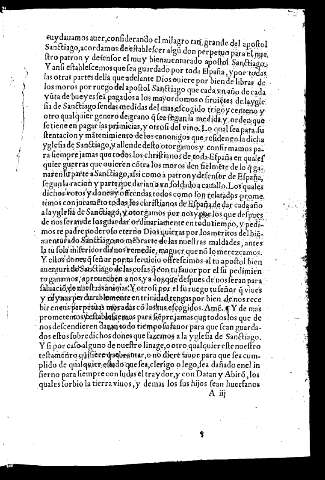 ayudarnos auer, considerando el milagro tan grande del apostol
Sanctiago, acordamos de establescer algũ don perpetuo para el nue-
stro patron y defensor el muy bienauenturado apostol Sanctiago.
Y ansi establescemos que sea guardado por toda España, y por todas
las otras partes della que adelante Dios quiere por bien de librar de
los moros por ruego del apostol Sanctiago que cada vn año de cada
yũta de bueyes sea pagado a los mayordomos o siruiẽtes de la ygle
sia de Sanctiago sendas medidas del mas escogido trigo y centeno y
otro qualquier genero de grano q̃ se segun la medida y orden que
se tiene en pagar las primicias, y otrosi del vino, Lo qual sea para su-
stentacion y mãtenimiento de los canonigos que residen en la dicha
yglesia de Sanctiago, y allende desto otorgamos y confirmamos pa-
ra siempre jamas que todos los christianos de toda España en quales
quier guerras que quieren cõtra los moros den fielmẽte de lo q̃ ga-
naren su parte a Sanctiago, assi como a patron y defensor de España,
segun la racion y parte que darian a vn soldado a cauallo. Los quales
dichos votos y dones y offrecidas como son relatados prome
timos con juramẽto todos los christianos de España de dar cada año
a la yglesia de Sanctiago, y otorgamos por nos y por los que despues
de nos seran de los guardar ordinariamente en todo tiempo, y pedi-
mos te padre poderoso eterno Dios quieras por los meritos del biẽ-
auenturado Sanctiago no mẽbrarte de las nuestras maldades, antes
la tu sola misericordia nos remedie, maguer que no lo merezcamos.
Y ellos dones q̃ señor por tu seruicio offrescimos al tu apostol bien
auenturado Sanctiago de las cosas q̃ con tu fauor por el su pedimien
to ganamos, aprouechen a nos, y a los que despues de nos seran para
saluacion de nuestras animas. Y otrosi por el su ruego tu señor q̃ viues
y reynas perdurablemente en trinidad tengas por bien de nos rece
bir en tus perpetuas moradas cõ los tus escogidos. Amẽ. ¶ Y de mas
prometemos y establescemos para siempre jamas que todos los que de
nos descendieren daran todo tiempo su fauor para que sean guarda-
dos estos sobre dichos dones que fazemos a la yglesia de Sanctiago.
Y si por caso alguno de nuestro linage, o otro qualquier este nuestro
testamẽto quisiere quebrantar, o no diere fauor para que sea cum-
plido de qualquier estado que sea, clerigo o lego, sea dañado en el in
fierno para siempre con Iudas el traydor, y con Datan y Abirõ, los
quales sorbio la tierra viuos, y demas los sus hijos sean huerfanos
A iij